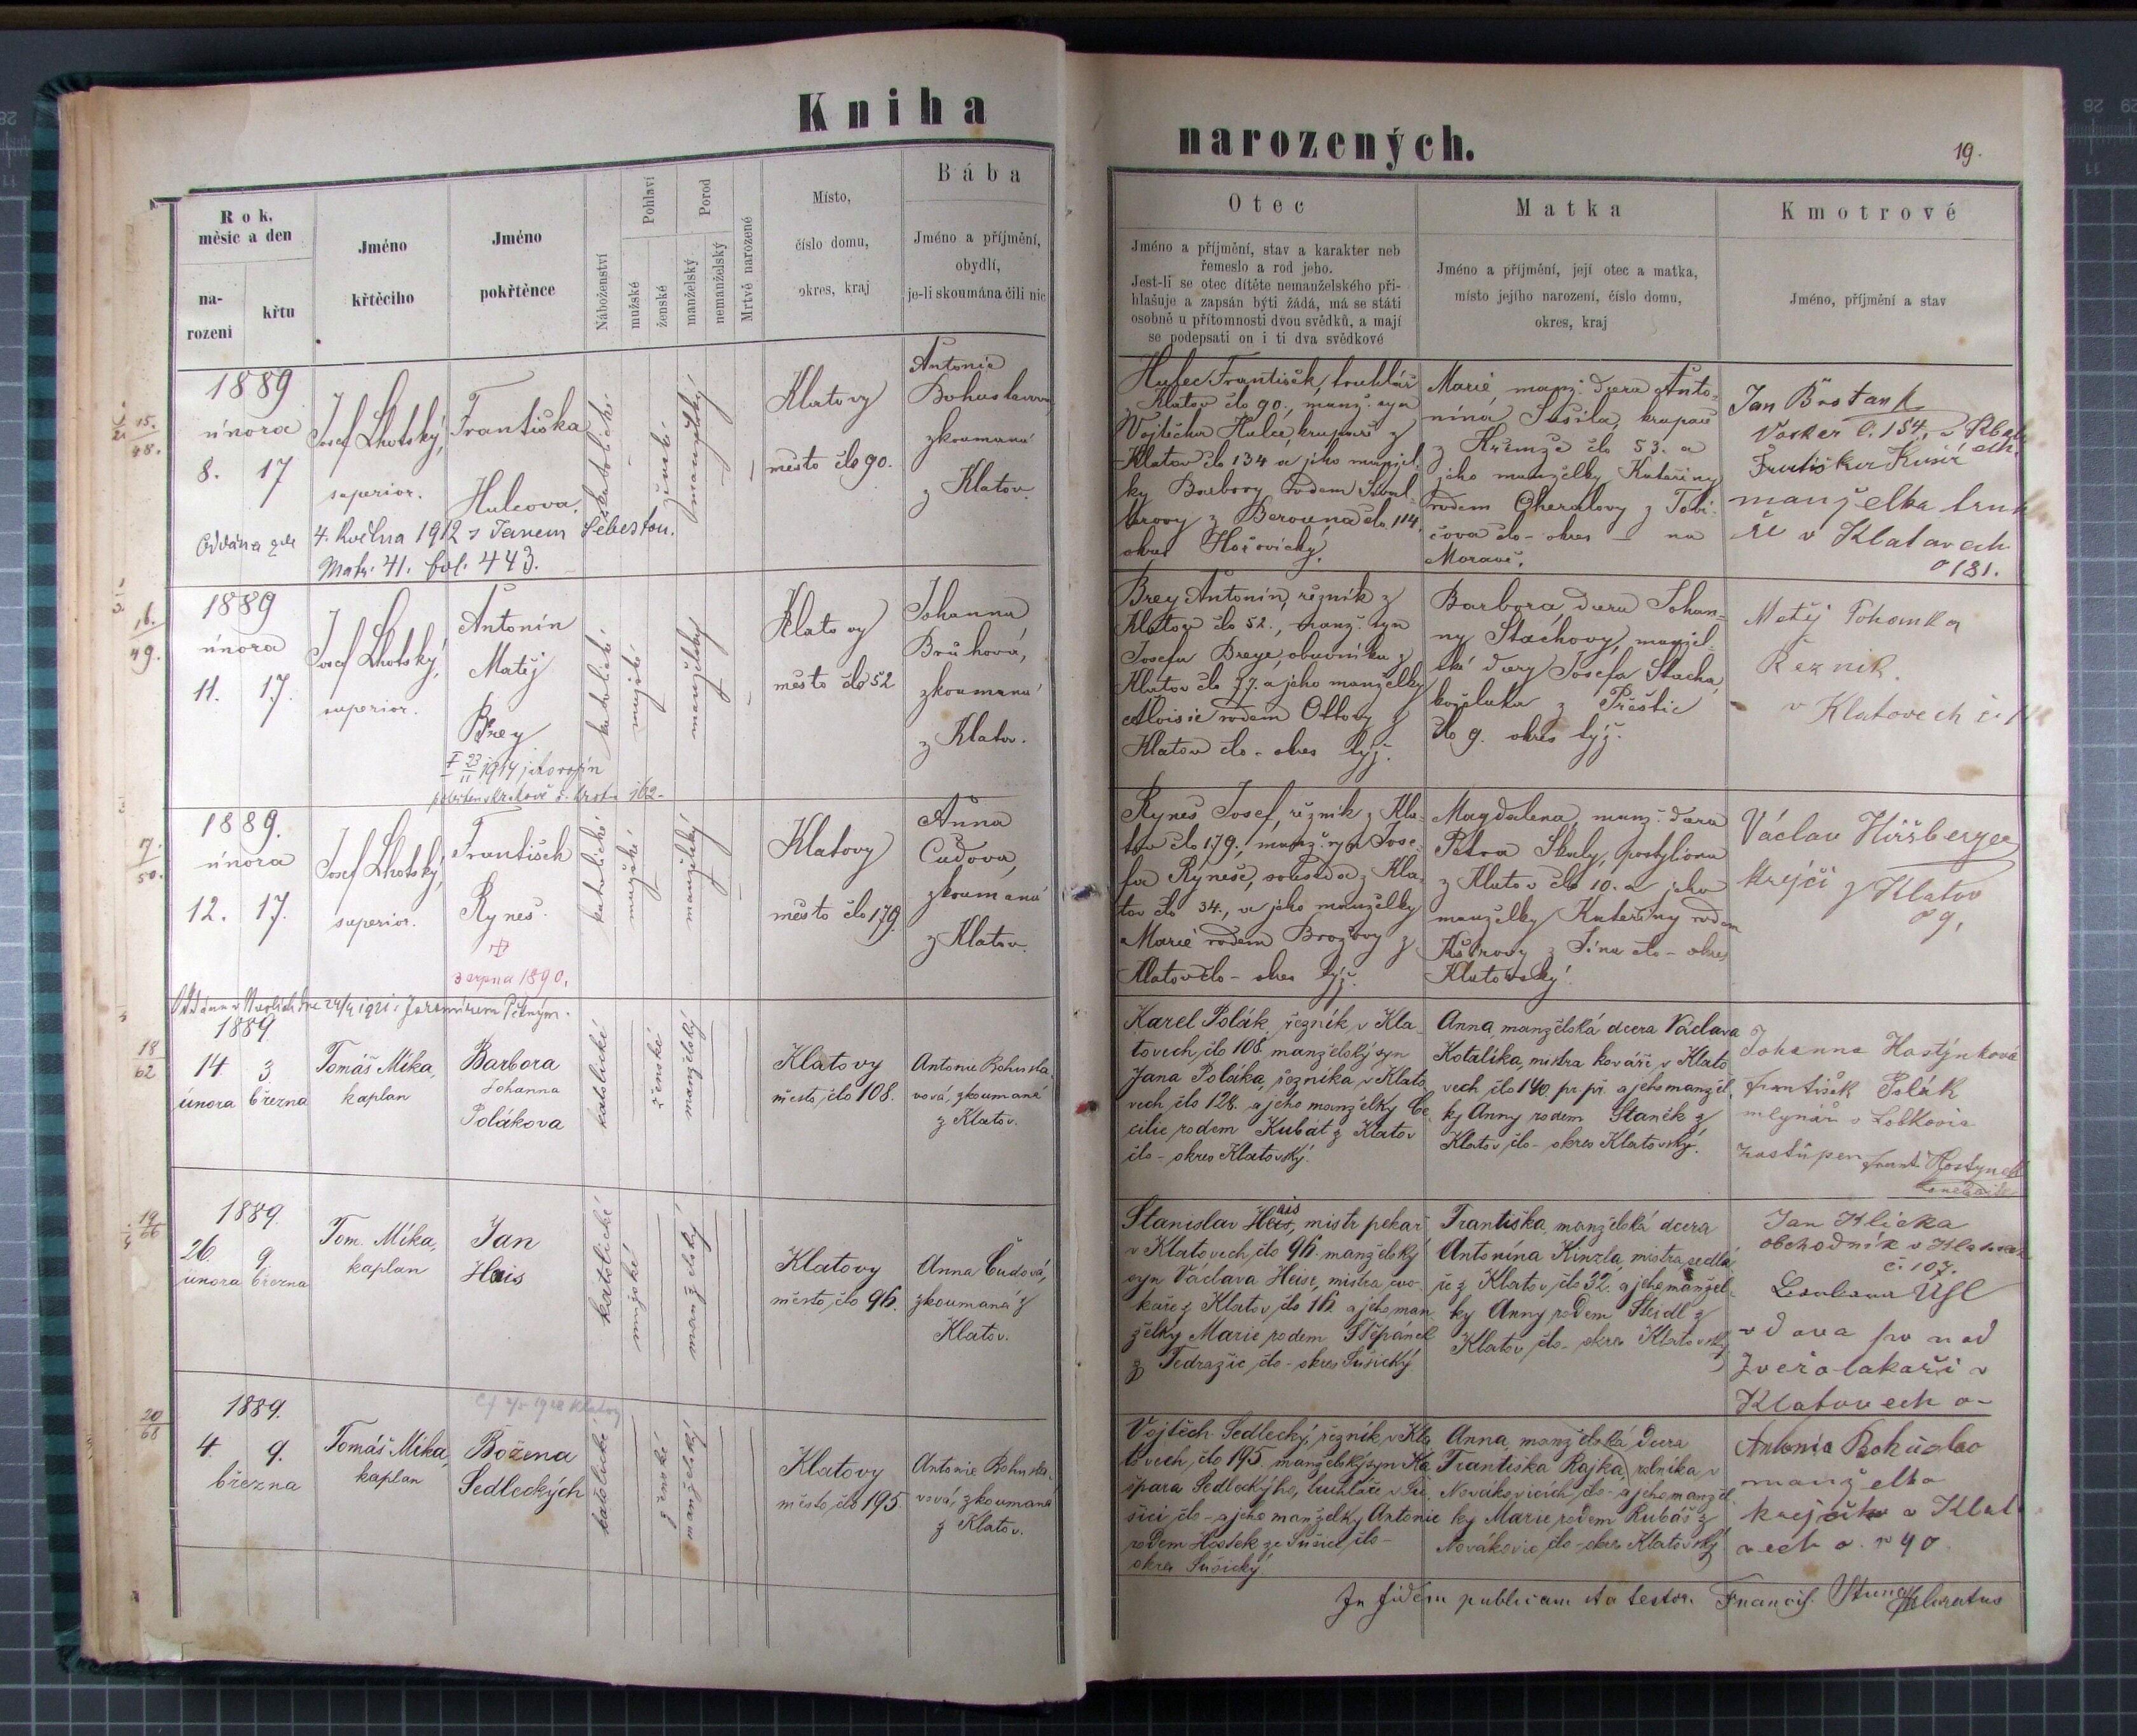 Kniha
narozených.
19.
Rok, měsíc a den
na-
rození
křtu
Jméno
křtěcího
Jméno
pokřtěnce
Náboženství
Pohlaví
mužské
ženské
Porod
manželský
nemanželský
Mrtvě narozené
Místo,
číslo domu,
okres, kraj
Bába
Jméno a příjmění,
obydlí,
je-li skoumána čili nic
Otec
Jméno a příjmění, stav a karakter neb
řemeslo a rod jeho.
Jest-li se otec dítěte nemanželského při-
hlašuje a zapsán býti žádá, má se státi
osobně u přítomnosti dvou svědků, a mají
se podepsati on i ti dva svědkové
Matka
Jméno a příjmění, její otec a matka,
místo jejího narození, číslo domu,
okres, kraj
Kmotrové
Jméno, příjmění a stav
15.
48.
1889
února
8. 17
Josef Lhotský,
superior.
Františka
Hulcova.
ženské
manželský
Klatovy
město čló 90.
Antonie
Bohuslavova
zkoumaná
z Klatov.
Oddána zde 4. května 1912 s Janem Šebestou.
Matr. 41. fol. 443.
Hulec František, truhlář
z Klatov čló 90., manž. syn
Vojtěcha Hulce, krupaře z
Klatov čló 134 a jeho manžel-
ky Barbory rodem
z Berouna čló 114.
okres Hořovický.
Marie, manž. dcera Anto-
nína Sušila, krupaře
z Křemže čló 53. a
jeho manželky Kateřiny
rodem z Tovi-
čova čló - okres - na
Moravě.
Jan
č. 154.
manželka
v Klatovech
181.
16.
49.
1889
února
11. 17.
Josef Lhotský,
superior.
Antonín
Matěj
Brey
1914
katolické
mužské
manželský
Klatovy
město čló 52
Johanna
Brůhová,
zkoumaná
z Klatov.
Brey Antonín, řezník z
Klatov čló 52., manž. syn
Josefa Breye, obuvníka z
Klatov čló 77. a jeho manželky
Aloisie rodem Ottovy z
Klatov čló - okres týž.
Barbora, dcera Johan-
ny Stachovy, manžel-
ské dcery Josefa Stacha,
koželuha z Přeštic
čló 9. okres týž.
Matěj Pohanka
Řezník.
v Klatovech
17.
50.
1889.
února
12. 17.
Josef Lhotský,
superior.
František
Ryneš.
3 srpna 1890.
katolické
mužské
manželský
Klatovy
město čló 179.
Anna
Čudová,
zkoumaná
z Klatov.
Ryneš Josef, řezník z Kla-
tov čló 179., manž. syn Jose-
fa Ryneše, souseda z Kla-
tov čló 34., a jeho manželky
Marie rodem Brožovy z
Klatov čló - okres týž.
Magdalena, manž. dcera
Petra Skály, postyliona
z Klatov čló 10. a jeho
manželky Kateřiny rodem
čló - okres
Klatovský.
Václav Hiršberger
krejčí z Klatov
9.
18
62
1889.
14 3
února března
Tomáš Mika,
kaplan
Barbora
Johanna
Polákova
katolické
ženské
manželský
Klatovy
město, čló 108.
Antonie Bohusla-
vová, zkoumaná
z Klatov.
Karel Polák, řezník v Kla-
tovech, čló 108. manželský syn
Jana Poláka, řezníka, v Klato-
vech, čló 128. a jeho manželky Ce-
cilie rodem Kubát z Klatov
čló - okres Klatovský.
Anna, manželská dcera Václava
Kotalíka, mistra kováře v Klato-
vech, čló 140. pr. př. a jeho manžel-
ky Anny rodem Staněk z
Klatov, čló - okres Klatovský.
Johanna Hostýnková
František Polák
mlynář
zastúpen Frant. Hostýnek
19
66
1889.
26. 9.
února března
Tom. Mika,
kaplan
Jan
Hais
katolické
mužské
manželský
Klatovy
město, čló 96.
Anna Čudová,
zkoumaná z
Klatov.
Stanislav Hais, mistr pekař
v Klatovech, čló 96. manželský
syn Václava Heise, mistra, cvo-
kaře z Klatov, čló 16. a jeho man-
želky Marie rodem Štěpánek
z Tedražic, čló - okres Sušický
Františka, manželská dcera
Antonína Kinzla, mistra, sedlá-
ře z Klatov, čló 32. a jeho manžel-
ky Anny rodem Steidl z
Klatov, čló - okres Klatovský
Jan Hlicka
obchodník v
č. 107.
vdova po nad
zvěrolékaři v
Klatovech
20
68
1889.
4. 9.
března
Tomáš Mika,
kaplan
1928 Klatovy
Božena
Sedleckých
katolické
ženské
manželský
Klatovy
město, čló 195
Antonie Bohusla-
vová, zkoumaná
z Klatov.
Vojtěch Sedlecký, řezník, v Kla-
tovech, čló 195. manželský syn Ka-
špara Sedleckýho, truhláře v Su-
šici čló - a jeho manželky Antonie
rodem Hostek ze Sušice čló -
okres Sušický.
Anna, manželská dcera
Františka Rajka, rolníka v
Novákovicích, čló - a jeho manžel-
ky Marie rodem Rubáš z
Novákovic, čló - okres Klatovský
Antonia
manželka
v Klat
vech 40
In fidem publicam ita testor. Francis.